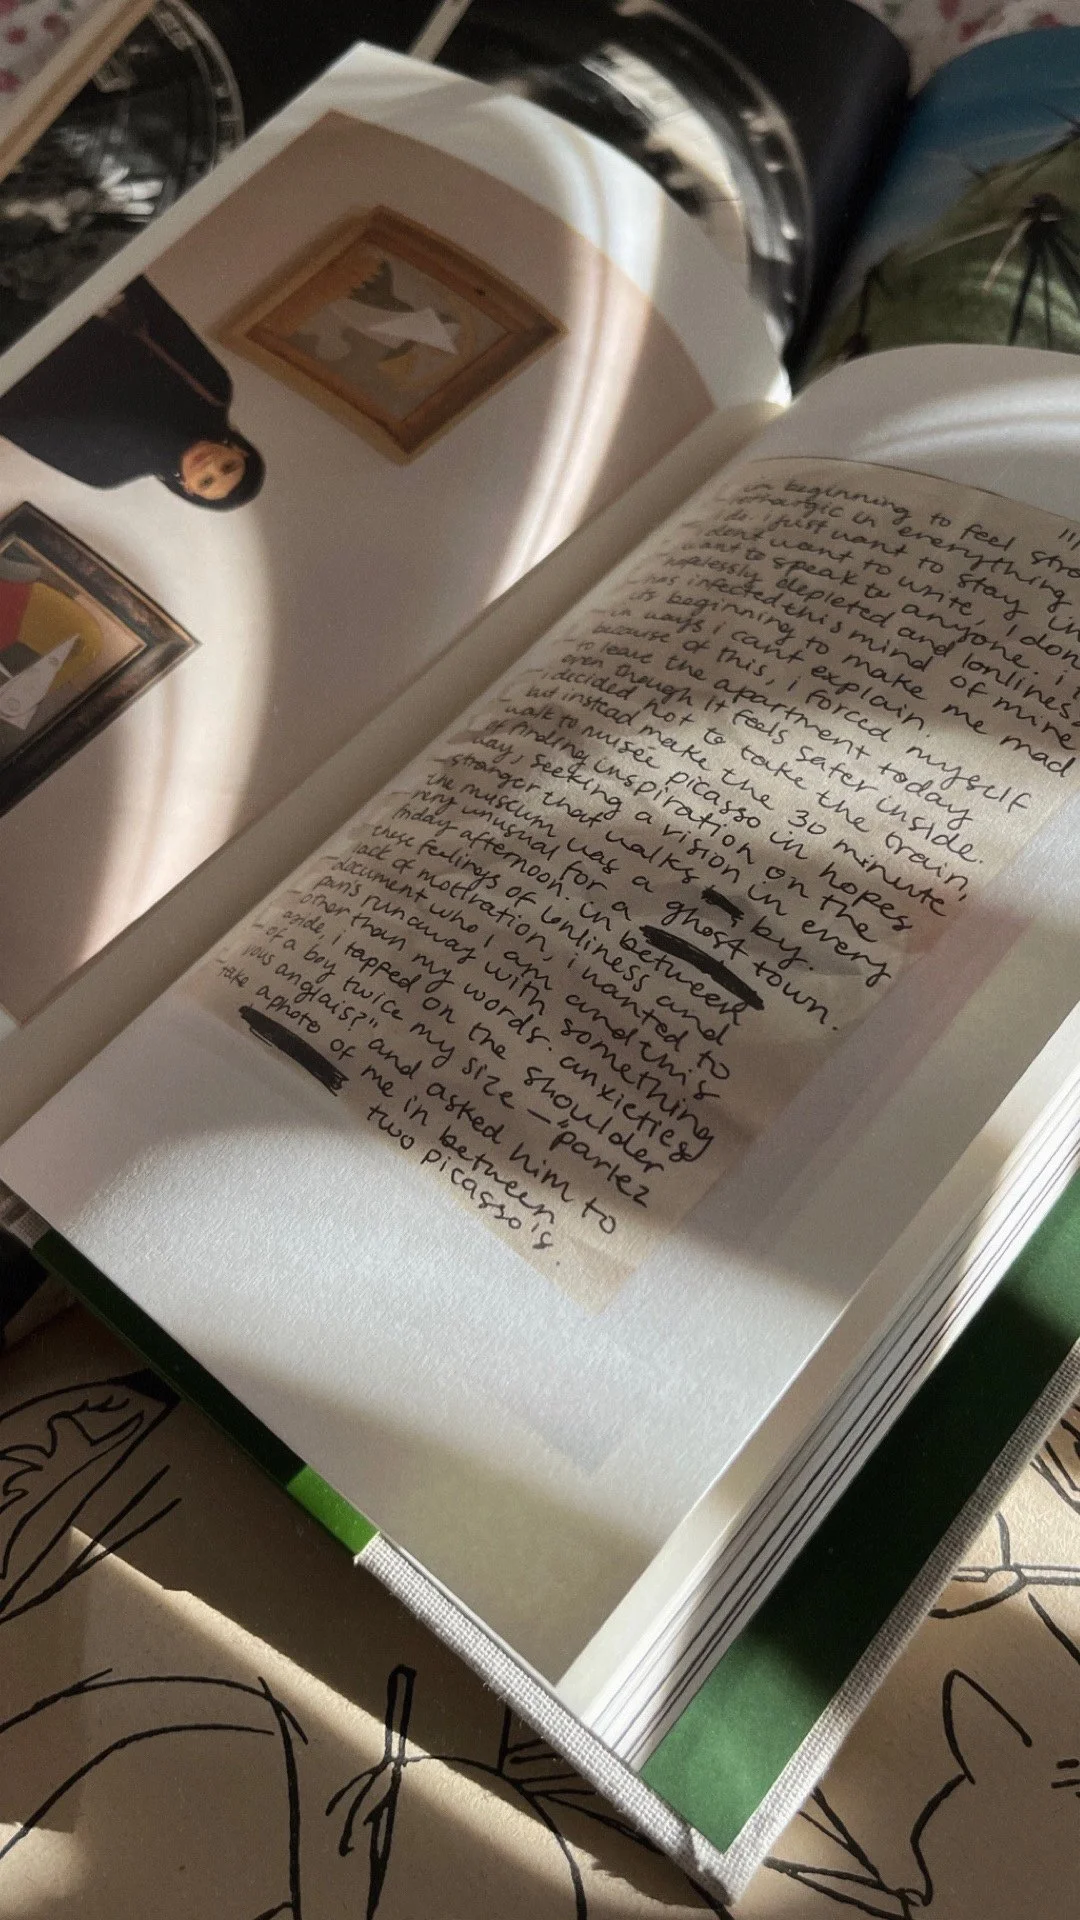 11/
im beginning to feel
lethargic in everything
i do. i just want to stay in
dont want to write, i dont
want to speak to anyone. i
hopelessly depleted and lonliness
has infected this mind of mine
its beginning to make me mad
in ways i cant explain.
because of this, i forced myself
to leave the apartment today
even though it feels safer inside.
i decided not to take the train,
but instead make the 30 minute
walk to musée picasso in hopes
of finding inspiration on the
way, seeking a vision in every
stranger that walks by.
the museum was a ghost town.
very unusual for a
friday afternoon. in between
these feelings of lonliness and
lack of motivation, i wanted to
document who I am and this
paris runaway with something
other than my words. anxieties
aside, i tapped on the shoulder
of a boy twice my size — "parlez
vous anglais?" and asked him to
take a photo of me in between
two picasso's.